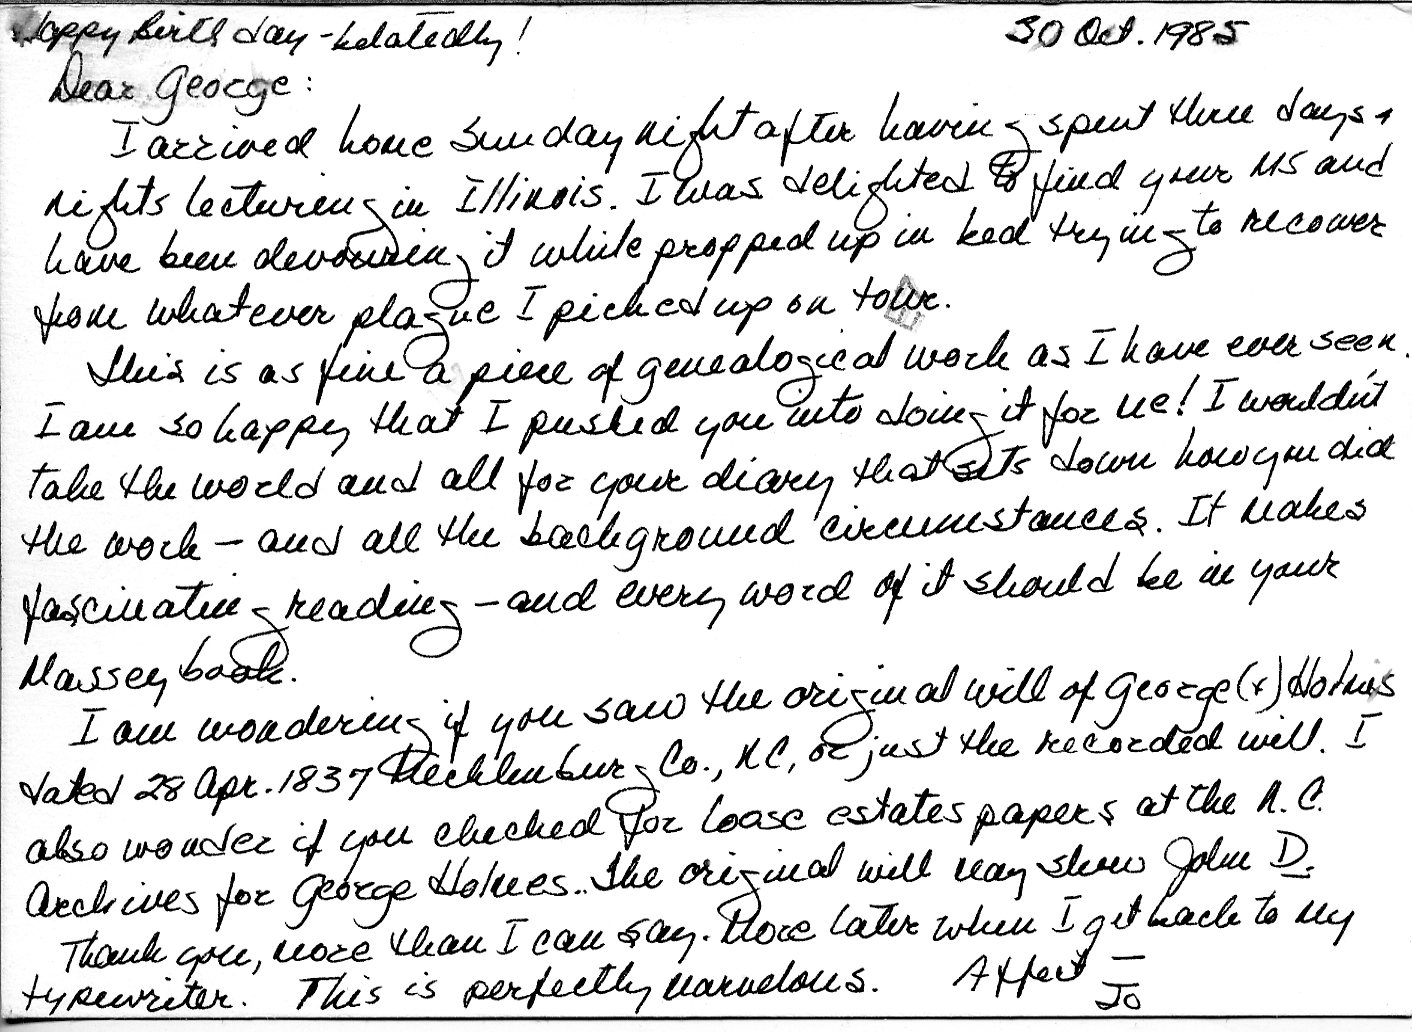 Happy Birthday - belatedly! 30 Oct. 1985
Dear George:
I arrived home Sunday night after having spent three days &
nights lecturing in Illinois. I was delighted to find your MS and
have been devouring it while propped up in bed trying to recover
from whatever plague I picked up on tour.
This is as fine a piece of genealogical work as I have ever seen.
I am so happy that I pushed you into doing it for me! I wouldn't
take the world and all for your diary that sets down how you did
the work - and all the background circumstances. It makes
fascinating reading - and every word of it should be in your
Massey book.
I am wondering if you saw the original will of George (x) Holmes
dated 28 Apr. 1837 Mecklenburg Co., N.C, or just the recorded will. I
also wonder if you checked for loose estates papers at the N.C.
Archives for George Holmes.. The original will may show John D.
Thank you, more than I can say. More later when I get back to my
typewriter. This is perfectly marvelous. Affect —
Jo